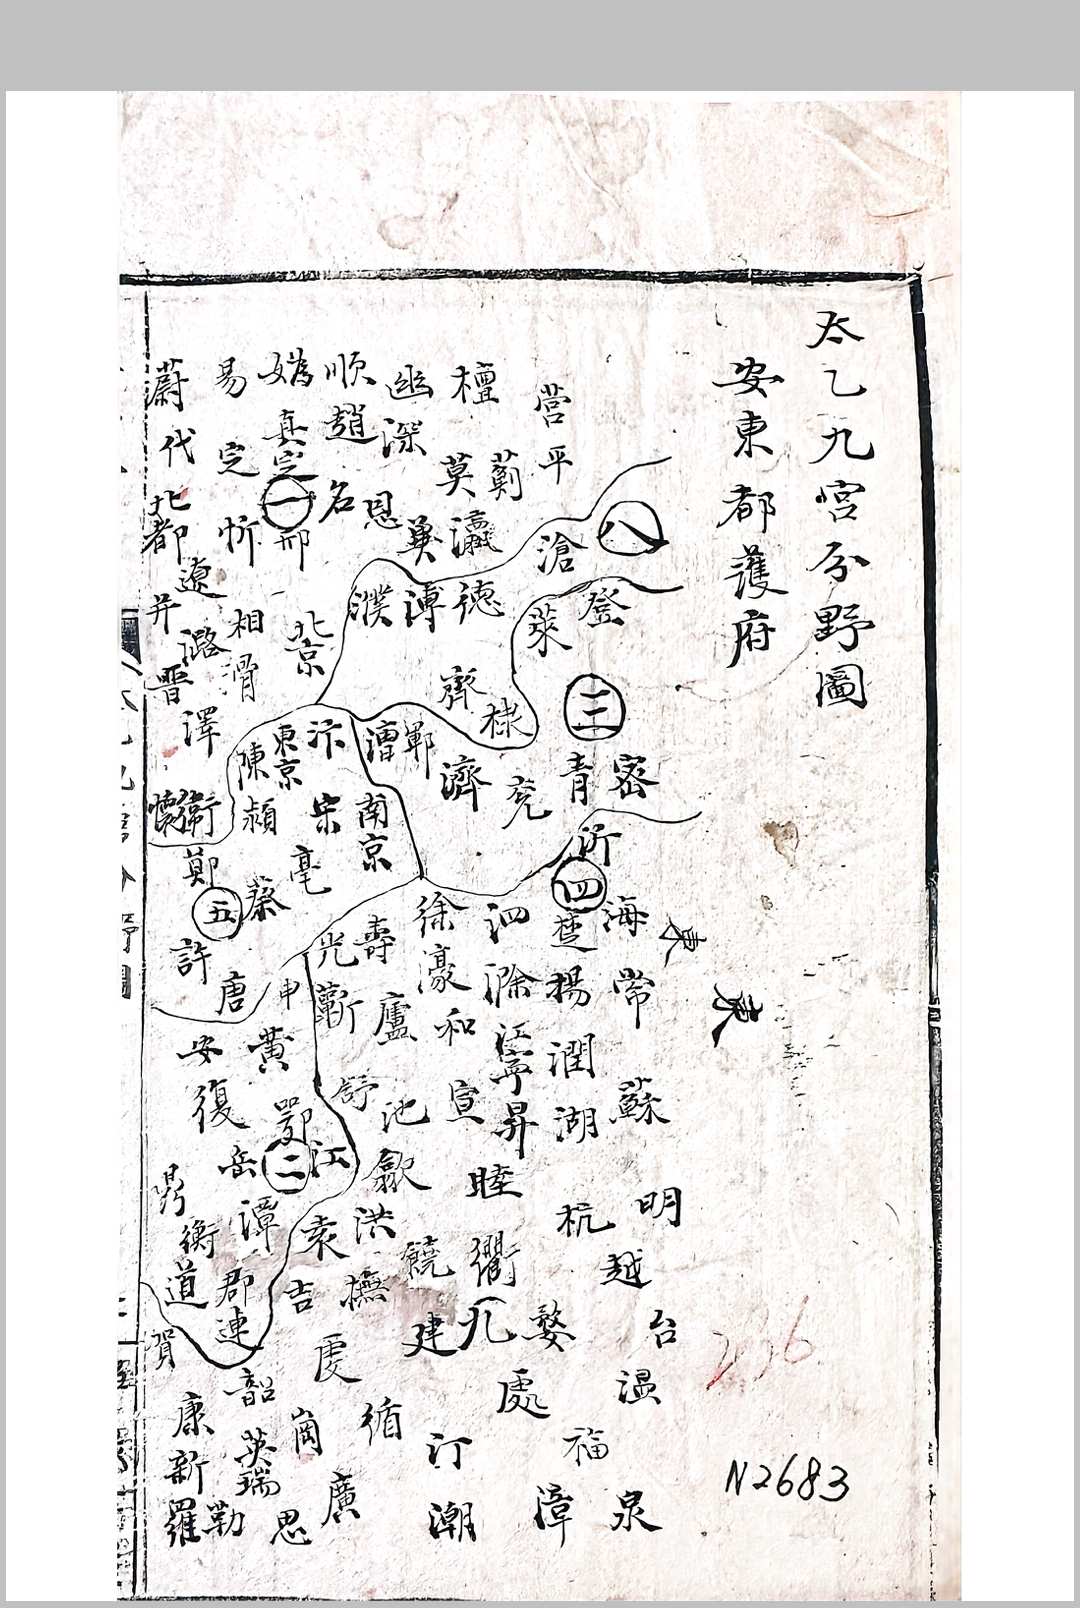 太乙九宮分野圖
安東都護府
營平
檀
薊
莫
瀛
幽
深
冀
恩
順
趙
名
媯
真定
一
邢
易
定
忻
蔚
代
北都
遼
并
潞
晉
澤
相
滑
北京
八
滄
登
萊
德
博
濮
齊
棣
三
密
青
沂
兗
濟
鄆
漕
汴
東京
陳
潁
宋
南京
亳
衛
懷
鄭
五
蔡
許
唐
申
四
楚
海
東
東
泗
徐
濠
壽
光
滁
揚
常
蘄
廬
和
江寧
潤
蘇
昇
湖
宣
池
舒
安
黃
復
鄂
二
江
岳
歙
睦
杭
明
越
衢
饒
洪
袁
潭
衡
道
郡
連
吉
撫
建
九
婺
台
溫
處
虔
賀
韶
康
新
羅
英
瑞
勒
循
汀
福
廣
恩
潮
漳
泉
N2683